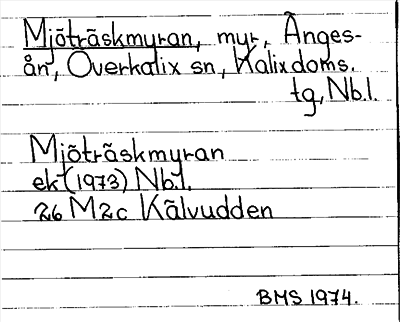 Mjöträskmyran, myr, Änges-
ån, Överkalix sn, Kalix doms.
tg, Nb.l.
Mjöträskmyran
ek (1973) Nb.l.
26 M2c Kälvudden
BMS 1974.